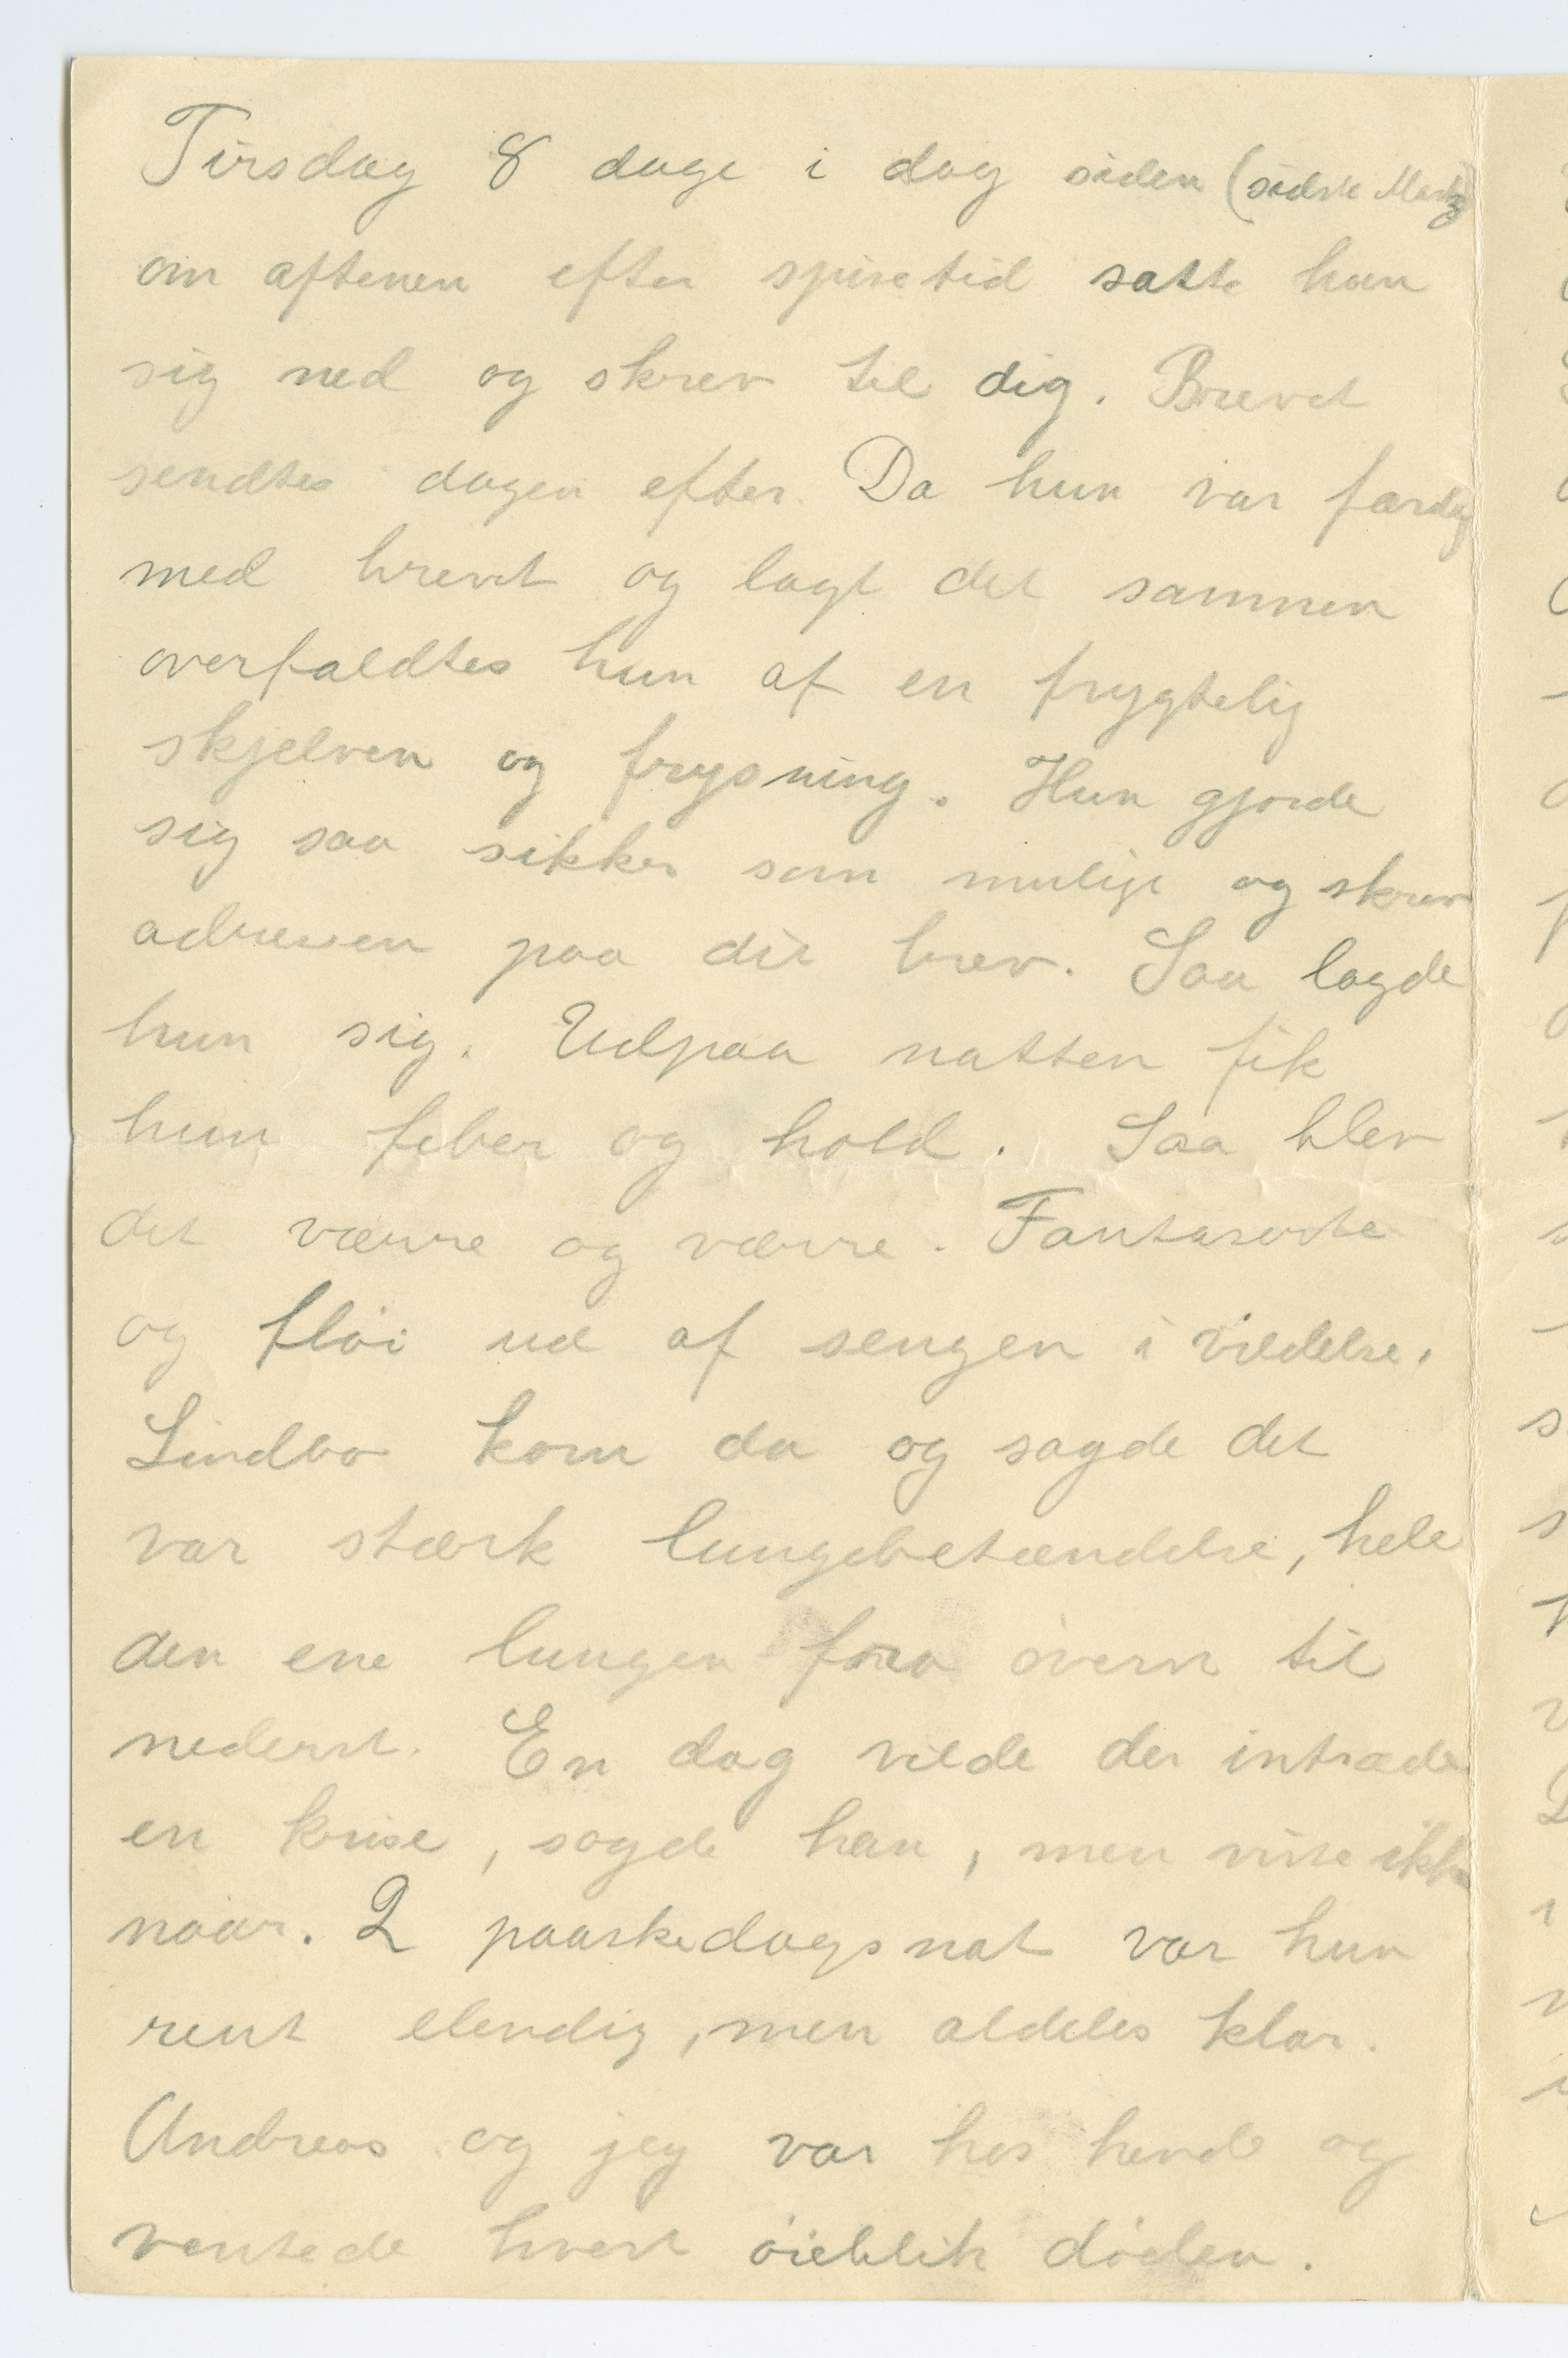 Tirsdag 8 dage i dag siden (sidste Marts)
om aftenen efter spisetid satte hun
sig ned og skrev til dig. Brevet
sendtes dagen efter. Da hun var færdig
med brevet og lagt det sammen
overfaldtes hun af en frygtelig
skjelven og frysning. Hun gjorde
sig saa sikker som muligt og skrev
adressen paa dit brev. Saa lagde
hun sig. Udpaa natten fik
hun feber og hold. Saa blev
det værre og værre. Fantaserte
og fløi ud af sengen i vildelse.
Lindboe kom da og sagde det
var stærk lungebetændelse, hele
den ene lungen fra øverst til
nederst. En dag vilde der intræde
en krise, sagde han, men viste ikke
naar. 2 paaskedags nat var hun
rent elendig, men aldeles klar.
Andreas og jeg var hos hende og
ventede hvert øieblik døden.